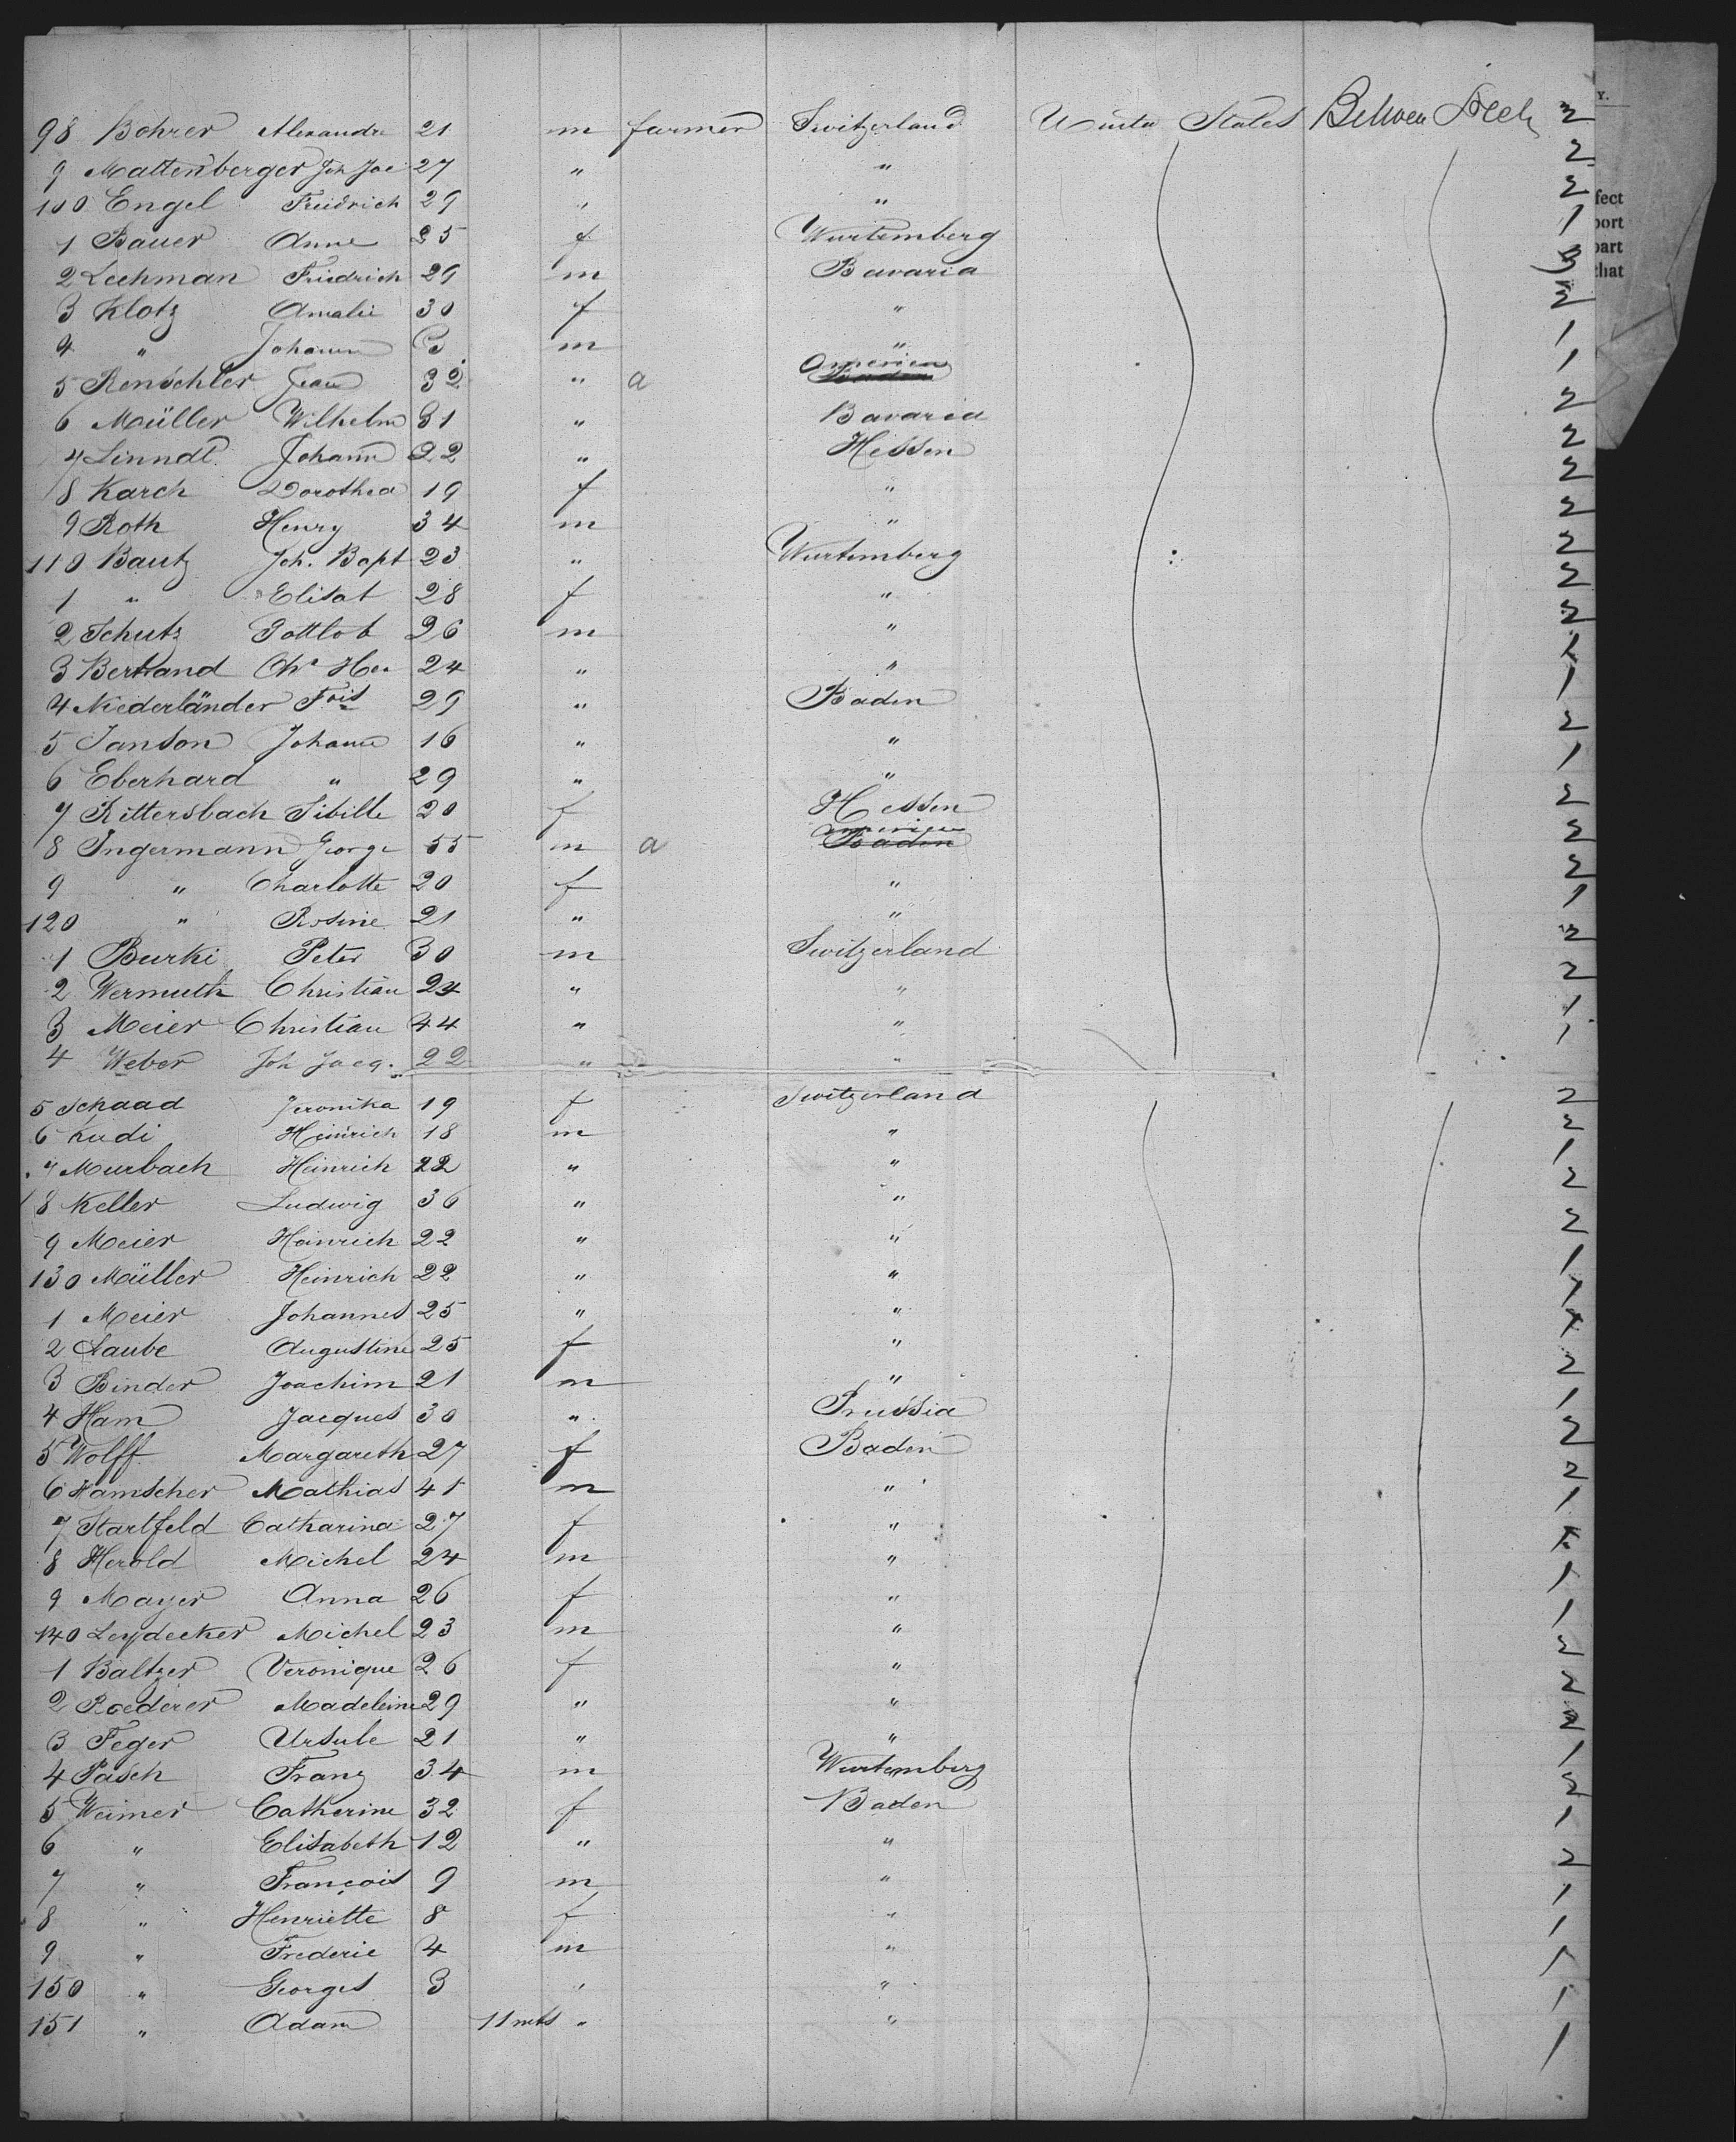 98 Bohrer Alexandre 21 m farmer Switzerland United States Between Deck 2
9 Mattenberger Joh Jac 27 " " 2
100 Engel Friedrich 29 " " 2
1 Bauer Anne 25 f Wurtemberg 1
2 Lechman Friedrich 29 m Bavaria 3
3 Klotz Amalie 30 f " 2
4 " Johann m " 1
5 Renschler Jean 32 " a American Baden 1
6 Müller Wilhelm 31 " Bavaria 2
7 Linndt Johann 22 " Hessen 2
8 Karch Dorothea 19 f " 2
9 Roth Henry 34 m " 2
110 Bautz Joh. Bapt 23 " Wurtemberg 2
1 " Elisat 28 f " 2
2 Schutz Gottlob 26 m " 2
3 Bertrand Chs 24 " " 1
4 Niederländer Fois 29 " Baden 1
5 Janson Johann 16 " " 2
6 Eberhard " 29 " " 1
7 Rittersbach Sibille 20 f Hessen 2
8 Ingermann George 55 m a American Baden 2
9 " Charlotte 20 f " 2
120 " Rosine 21 " " 1
1 Burki Peter 30 m Switzerland 2
2 Wermuth Christian 24 " " 2
3 Meier Christian 44 " " 1
4 Weber Joh Jacq. 22 " " 1
5 Schaad Veronika 19 f Switzerland 2
6 Rudi Heinrich 18 m " 2
7 Murbach Heinrich 22 " " 1
8 Keller Ludwig 36 " " 2
9 Meier Heinrich 22 " " 2
130 Müller Heinrich 22 " " 1
1 Meier Johannes 25 " " 1
2 Laube Augustine 25 f " 1
3 Binder Joachim 21 m " 2
4 Ham Jacques 30 " Prussia 1
5 Wolff Margareth 27 f Baden 2
6 Hamscher Mathias 41 m " 2
7 Startfeld Catharina 27 f " 1
8 Herold Michel 24 m " 1
9 Mayer Anna 26 f " 1
140 Leydecker Michel 23 m " 1
1 Baltzer Veronique 26 f " 2
2 Roederer Madeleine 29 " " 2
3 Feger Ursule 21 " " 2
4 Pasch Franz 34 m Wurtemberg 1
5 Weimer Catherine 32 f Baden 2
6 " Elisabeth 12 " " 1
7 " François 9 m " 2
8 " Henriette 8 f " 1
9 " Frederic 4 m " 1
150 " Georges 3 " " 1
151 " Adam 11 mts " " 1
1
Y.
fect
port
part
that